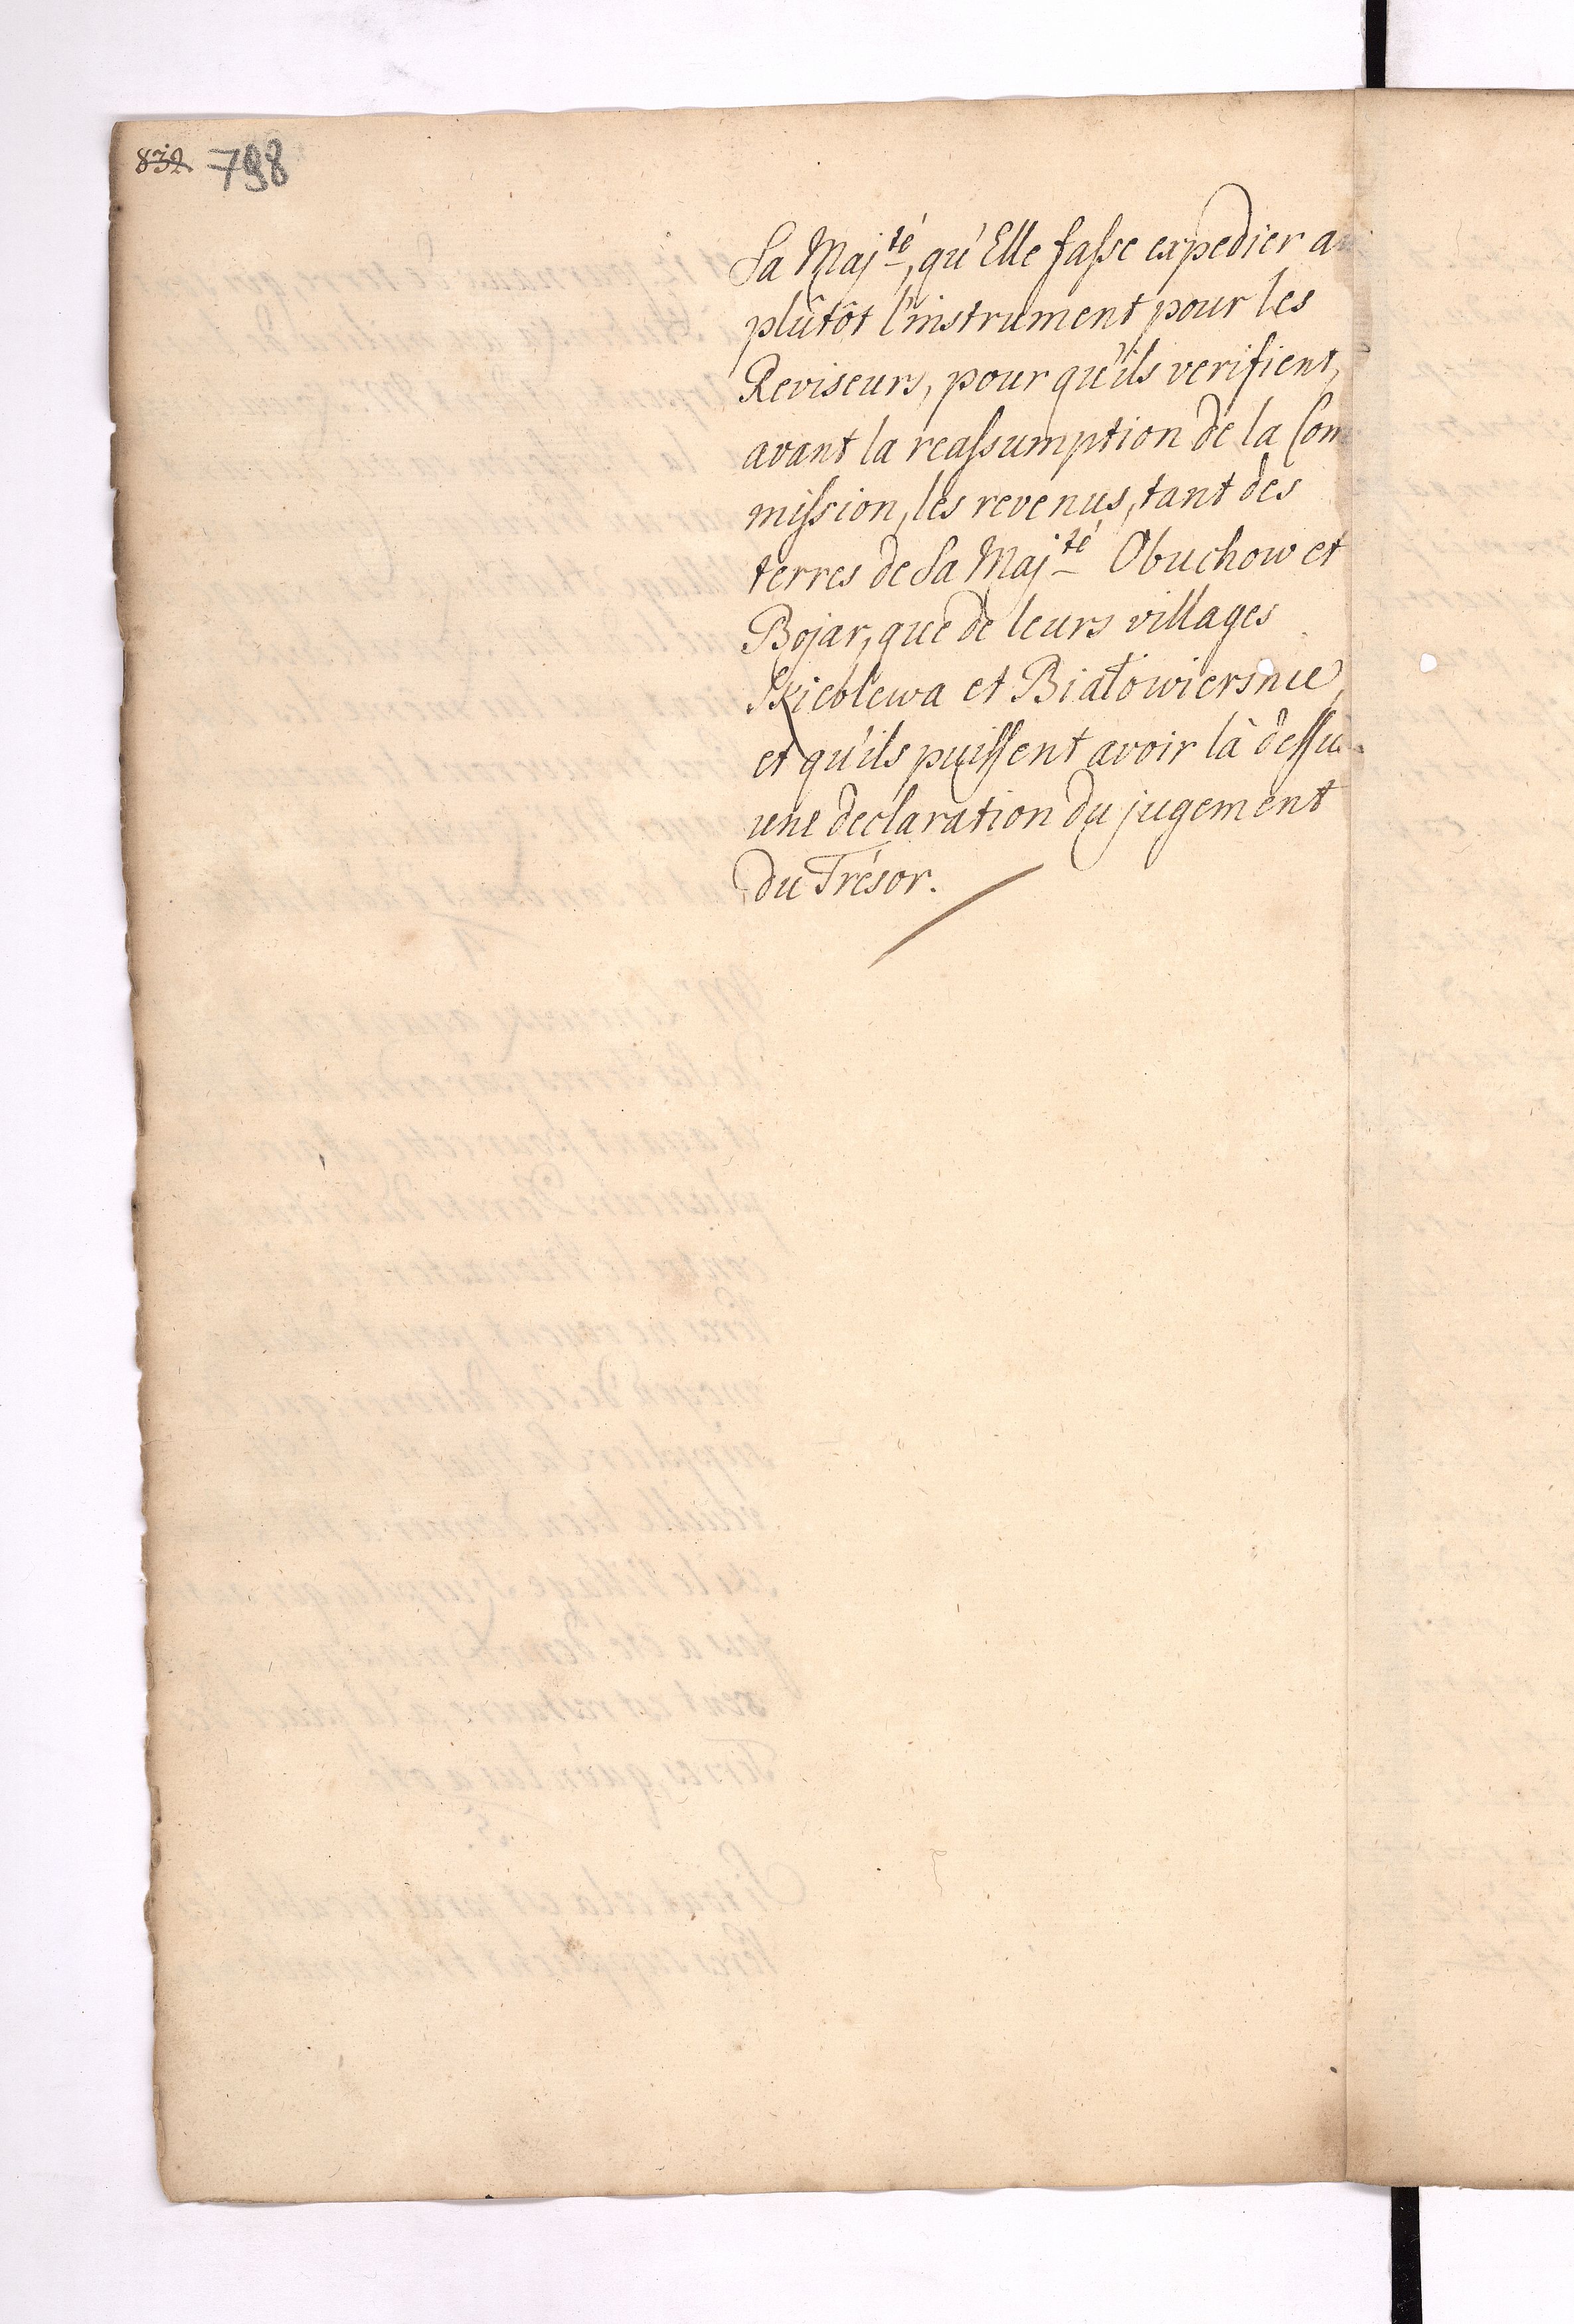 832 798
Sa Maj.té, qu'Elle faſse expedier au
plûtôt l'instrument pour les
Reviseurs, pour qu'ils verifient,
avant la reaſsumption de la Com
miſsion, les revenus, tant des
terres de Sa Maj.té Obuchow et
Bojar, que de leurs villages
et Białowiersnie,
et qu'ils puiſsent avoir là deſsus
une declaration du jugement
du Trésor.